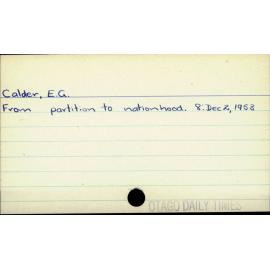 Calder, E.G.
From partition to nationhood. 8.Dec2,1958
OTAGO DAILY TIMES